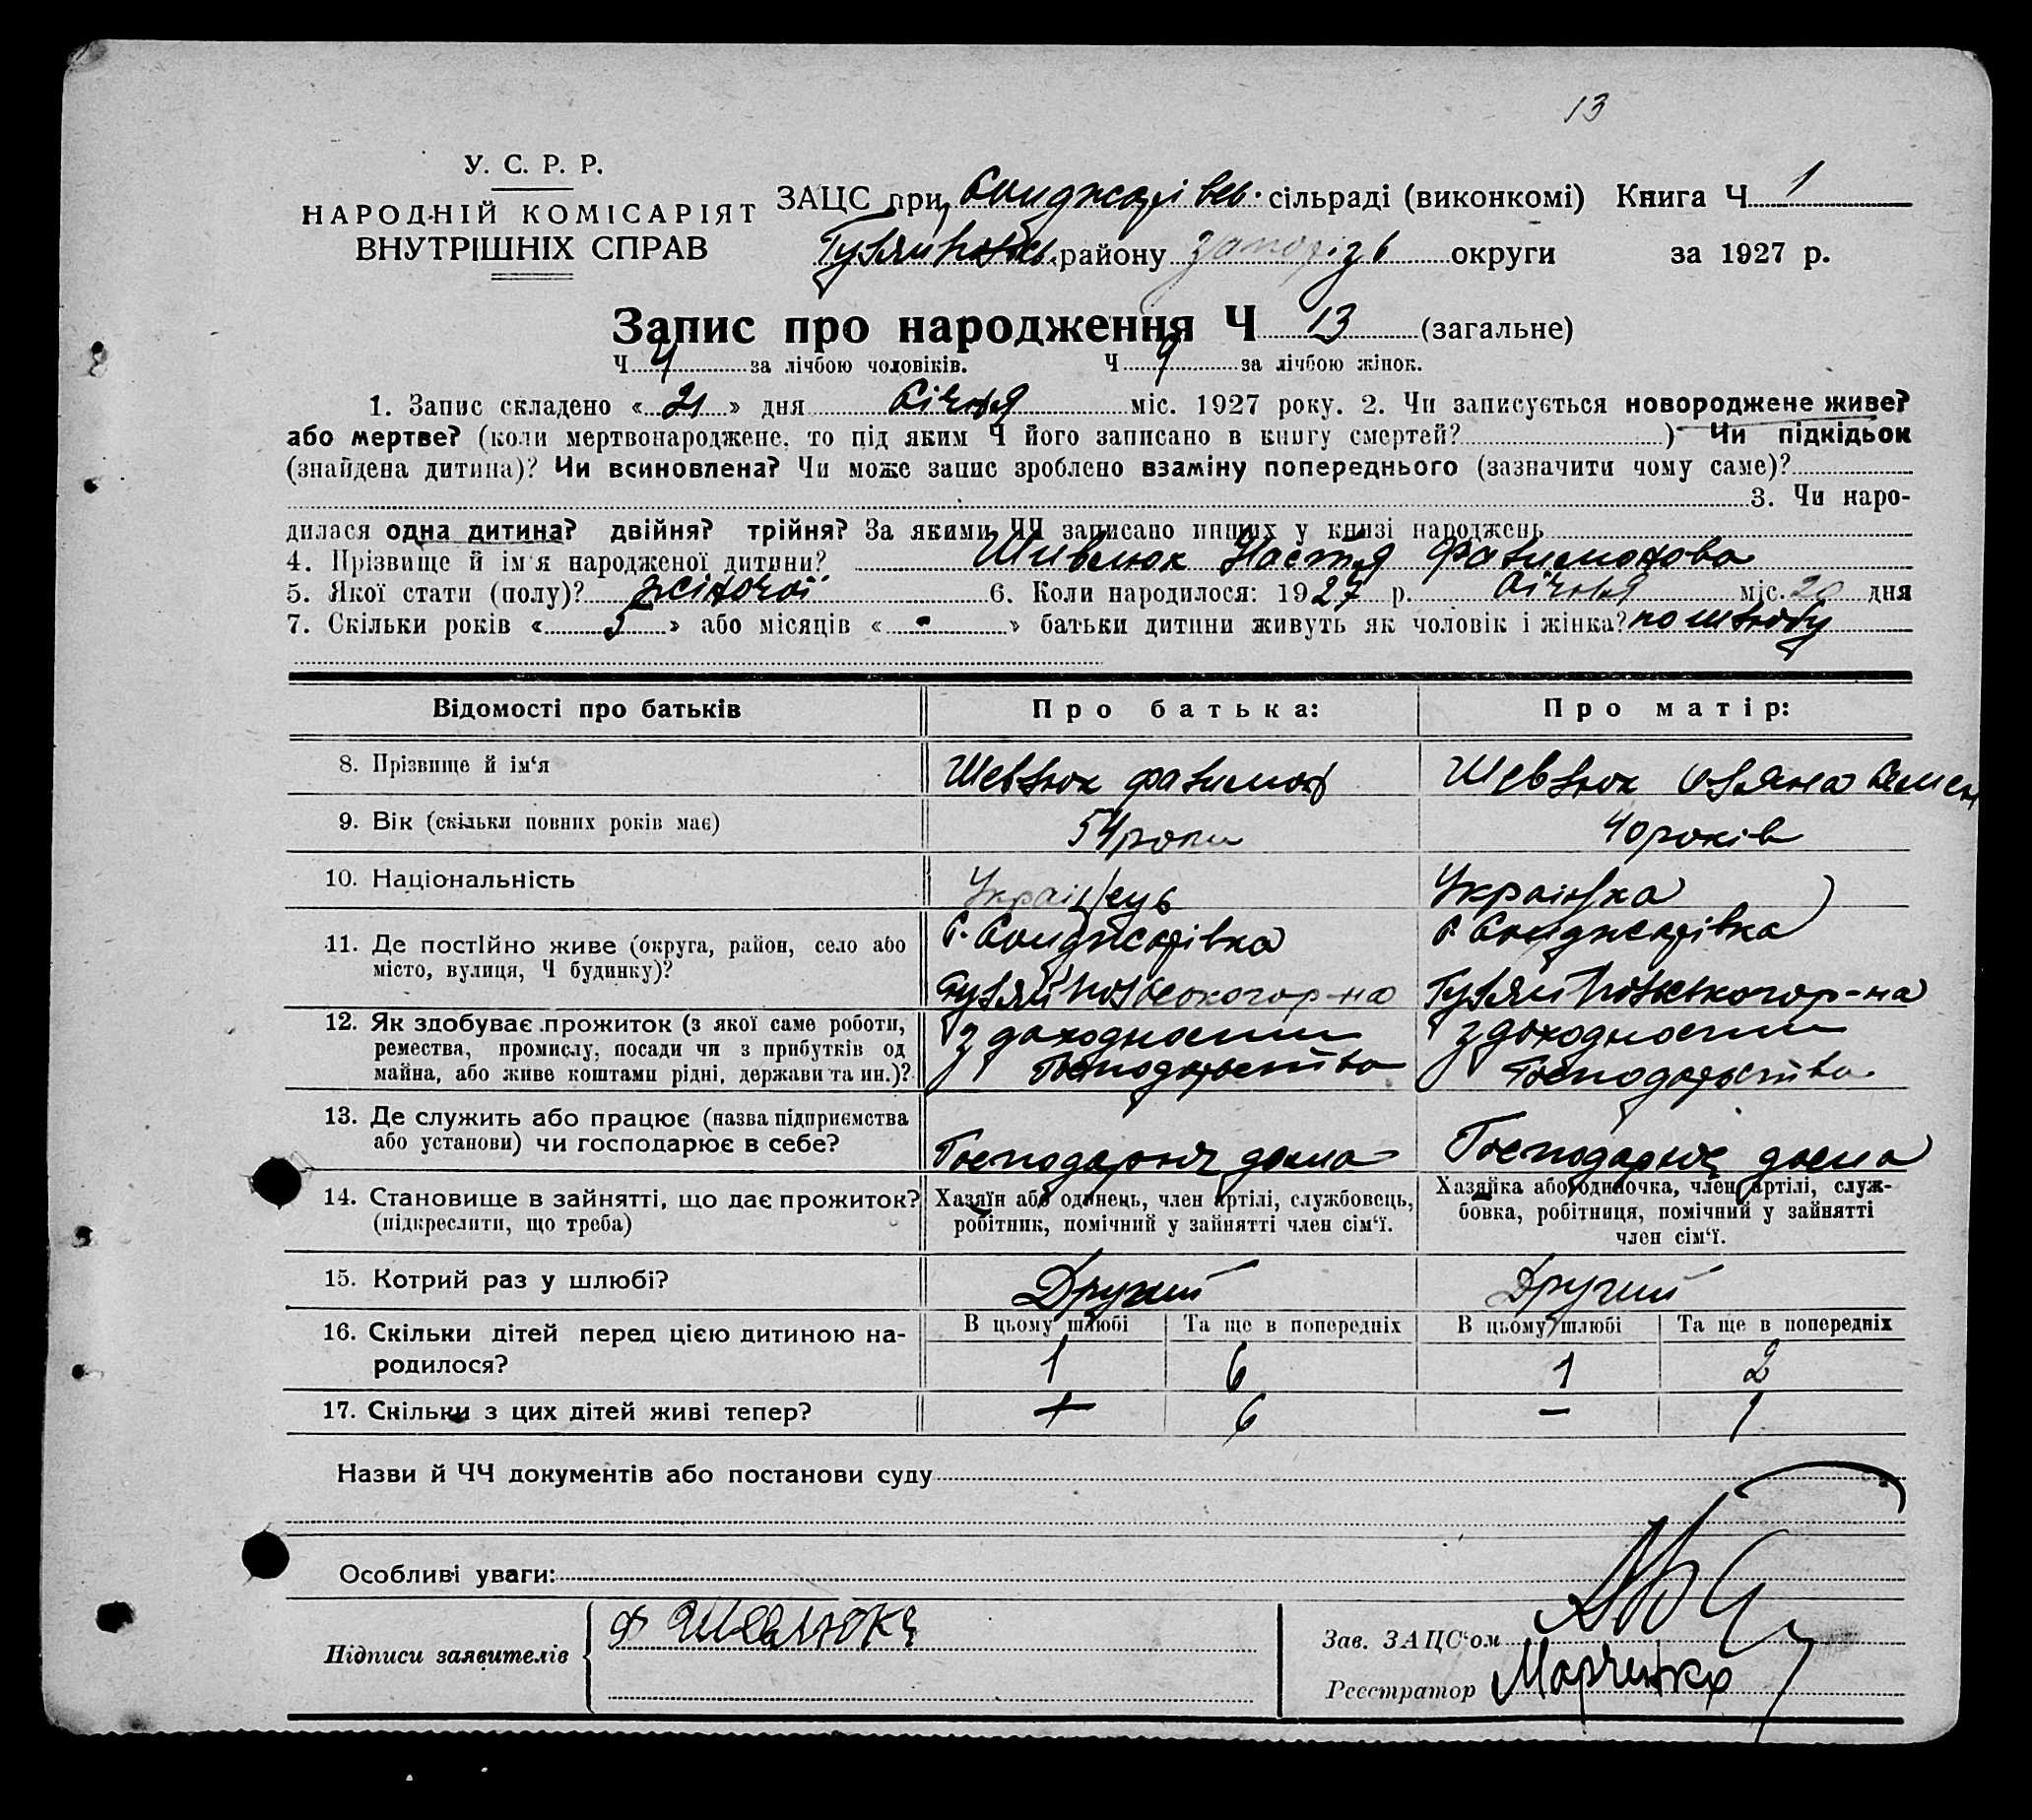 13
У. С. Р. Р.
НАРОДНІЙ КОМІСАРІЯТ
ВНУТРІШНІХ СПРАВ
ЗАЦС при Санжарівсь. сільраді (виконкомі) Книга Ч 1
Гуляйпольсь. району Запоріз. округи за 1927 р.
Запис про народження Ч 13 (загальне)
Ч 4 за лічбою чоловіків. Ч 9 за лічбою жінок.
1. Запис складено « 21 » дня Січня міс. 1927 року. 2. Чи записується новороджене живе?
або мертве? (коли мертвонароджене, то під яким Ч його записано в книгу смертей? ) Чи підкідьок
(знайдена дитина)? Чи всиновлена? Чи може запис зроблено взаміну попереднього (зазначити чому саме)?
3. Чи наро-
дилася одна дитина? двійня? трійня? За якими ЧЧ записано инших у книзі народжень
4. Прізвище й ім'я народженої дитини? Шевлюк Настя Филимонова
5. Якої стати (полу)? жіночої 6. Коли народилося: 1927 р. Січня міс. 20 дня
7. Скільки років « 5 » або місяців « - » батьки дитини живуть як чоловік і жінка? по шлюбу
Відомості про батьків Про батька: Про матір:
8. Прізвище й ім'я Шевлюк Филимон Шевлюк Уляна Семен
9. Вік (скільки повних років має) 54 роки 40 років
10. Національність Українець Українка
11. Де постійно живе (округа, район, село або С. Санжарівка С. Санжарівка
місто, вулиця, Ч будинку)? Гуляйпольського р-на Гуляйпольського р-на
12. Як здобуває прожиток (з якої саме роботи, з доходности з доходности
ремества, промислу, посади чи з прибутків од Господарства Господарства
майна, або живе коштами рідні, держави та ин.)?
13. Де служить або працює (назва підприємства
або установи) чи господарює в себе? Господарює дома Господарює дома
14. Становище в зайнятті, що дає прожиток? Хазяїн або одинець, член артілі, службовець, Хазяйка або одиночка, член артілі, служ-
(підкреслити, що треба) робітник, помічний у зайнятті член сім'ї. бовка, робітниця, помічний у зайнятті
член сім'ї.
15. Котрий раз у шлюбі? Другий Другий
16. Скільки дітей перед цією дитиною на- В цьому шлюбі Та ще в попередніх В цьому шлюбі Та ще в попередніх
родилося? 1 6 1 2
17. Скільки з цих дітей живі тепер? 6 — 1
Назви й ЧЧ документів або постанови суду
Особливі уваги:
Підписи заявителів Ф Шевлюк
Зав. ЗАЦС'ом
Реєстратор Марченко